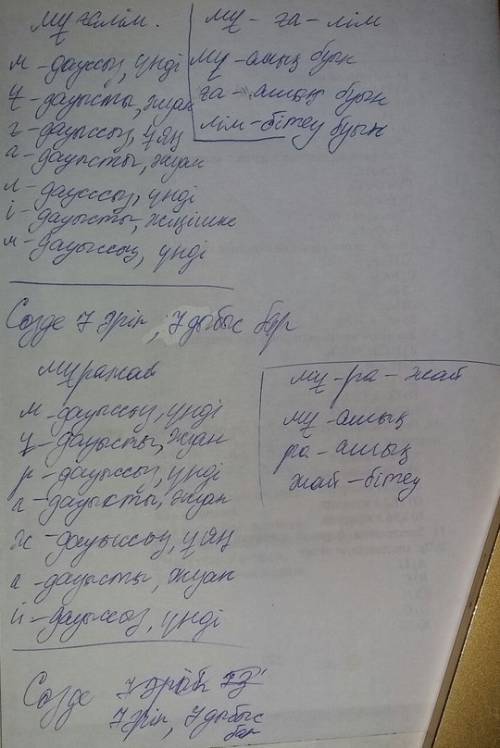 мұғалім.
м - дауыссыз, үнді
ұ - дауысты, жуан
ғ - дауыссыз, ұяң
а - дауысты, жуан
л - дауыссыз, үнді
і - дауысты, жіңішке
м - дауыссыз, үнді
мұ - ға - лім
мұ - ашық буын
ға - ашық буын
лім - бітеу буын
Сөзде 7 әріп, 7 дыбыс бар
мұражай
м - дауыссыз, үнді
ұ - дауысты, жуан
р - дауыссыз, үнді
а - дауысты, жуан
ж - дауыссыз, ұяң
а - дауысты, жуан
й - дауыссыз, үнді
мұ - ра - жай
мұ - ашық
ра - ашық
жай - бітеу
Сөзде 7
7 әріп, 7 дыбыс
бар